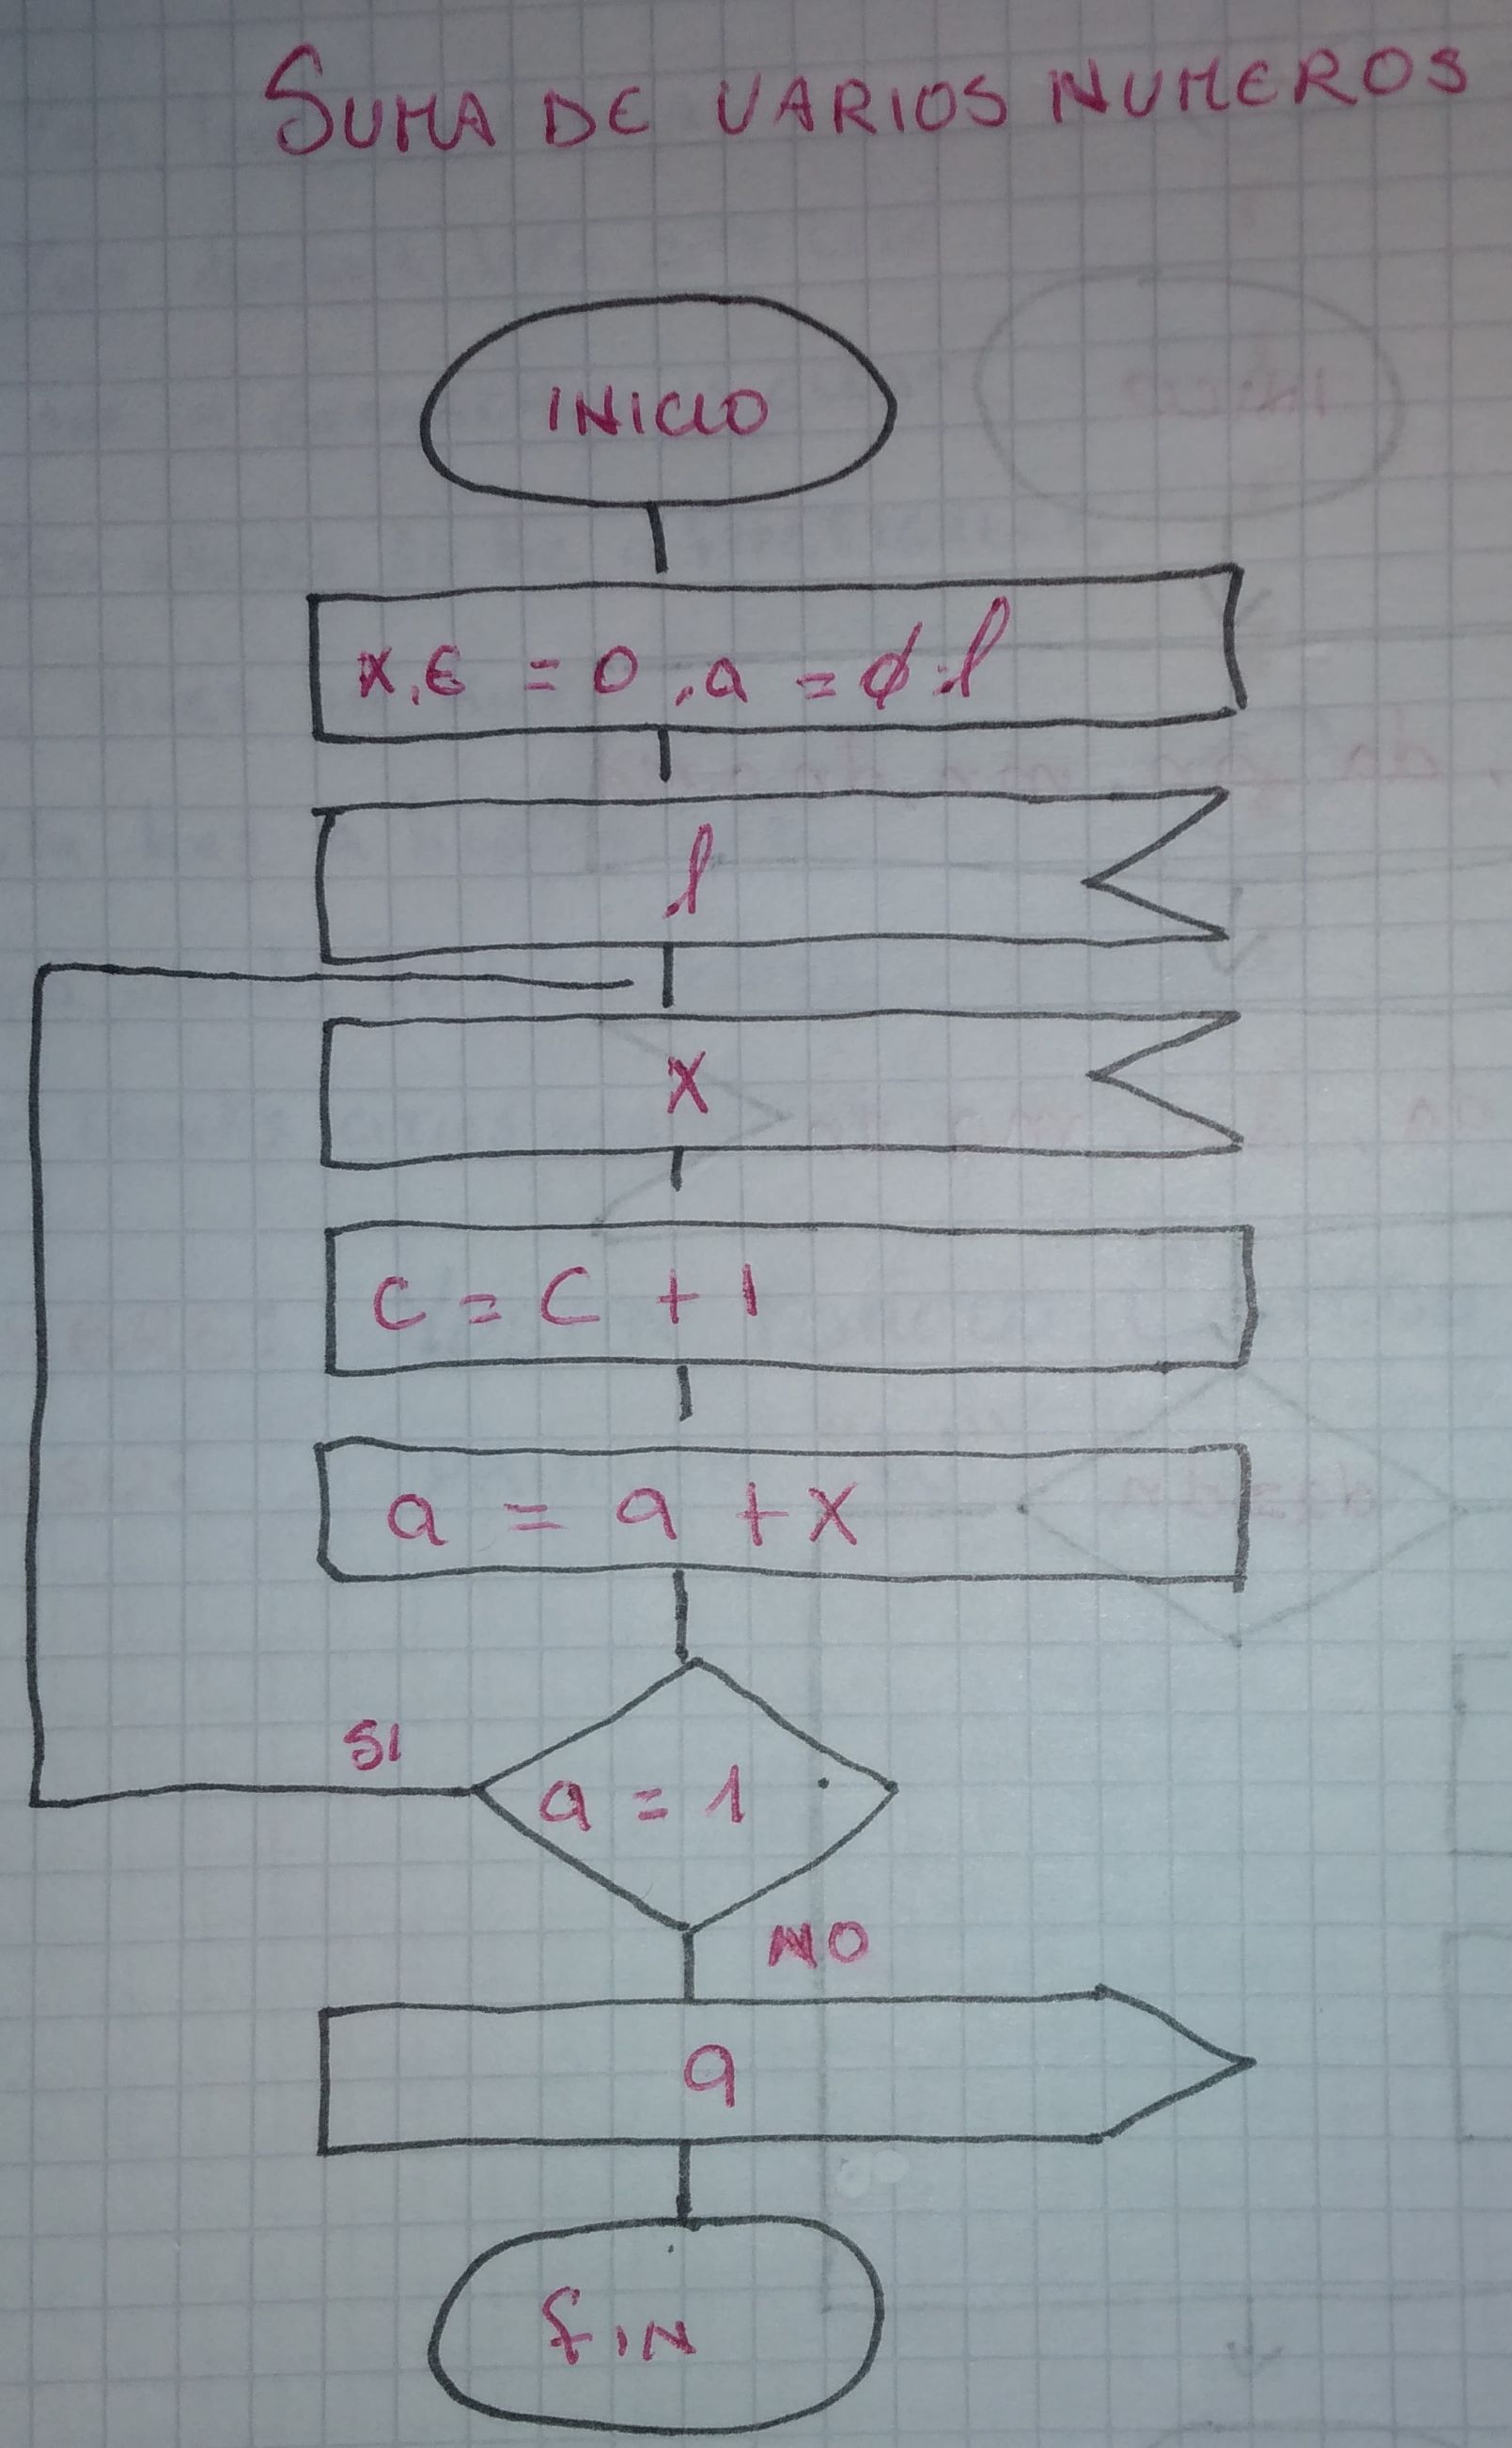 SUMA DE VARIOS NUMEROS
INICIO
x, c = 0, a = ϕ, l
l
x
c = c + 1
a = a + x
SI
a = 1
NO
a
FIN